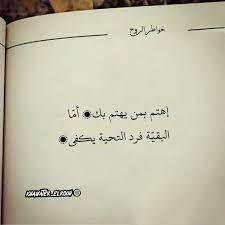 خواطر الروح
إهتم بمن يهتم بك◉ أمّا
البقيّة فرد التحية يكفى◉
KHAWATER_ELROUH